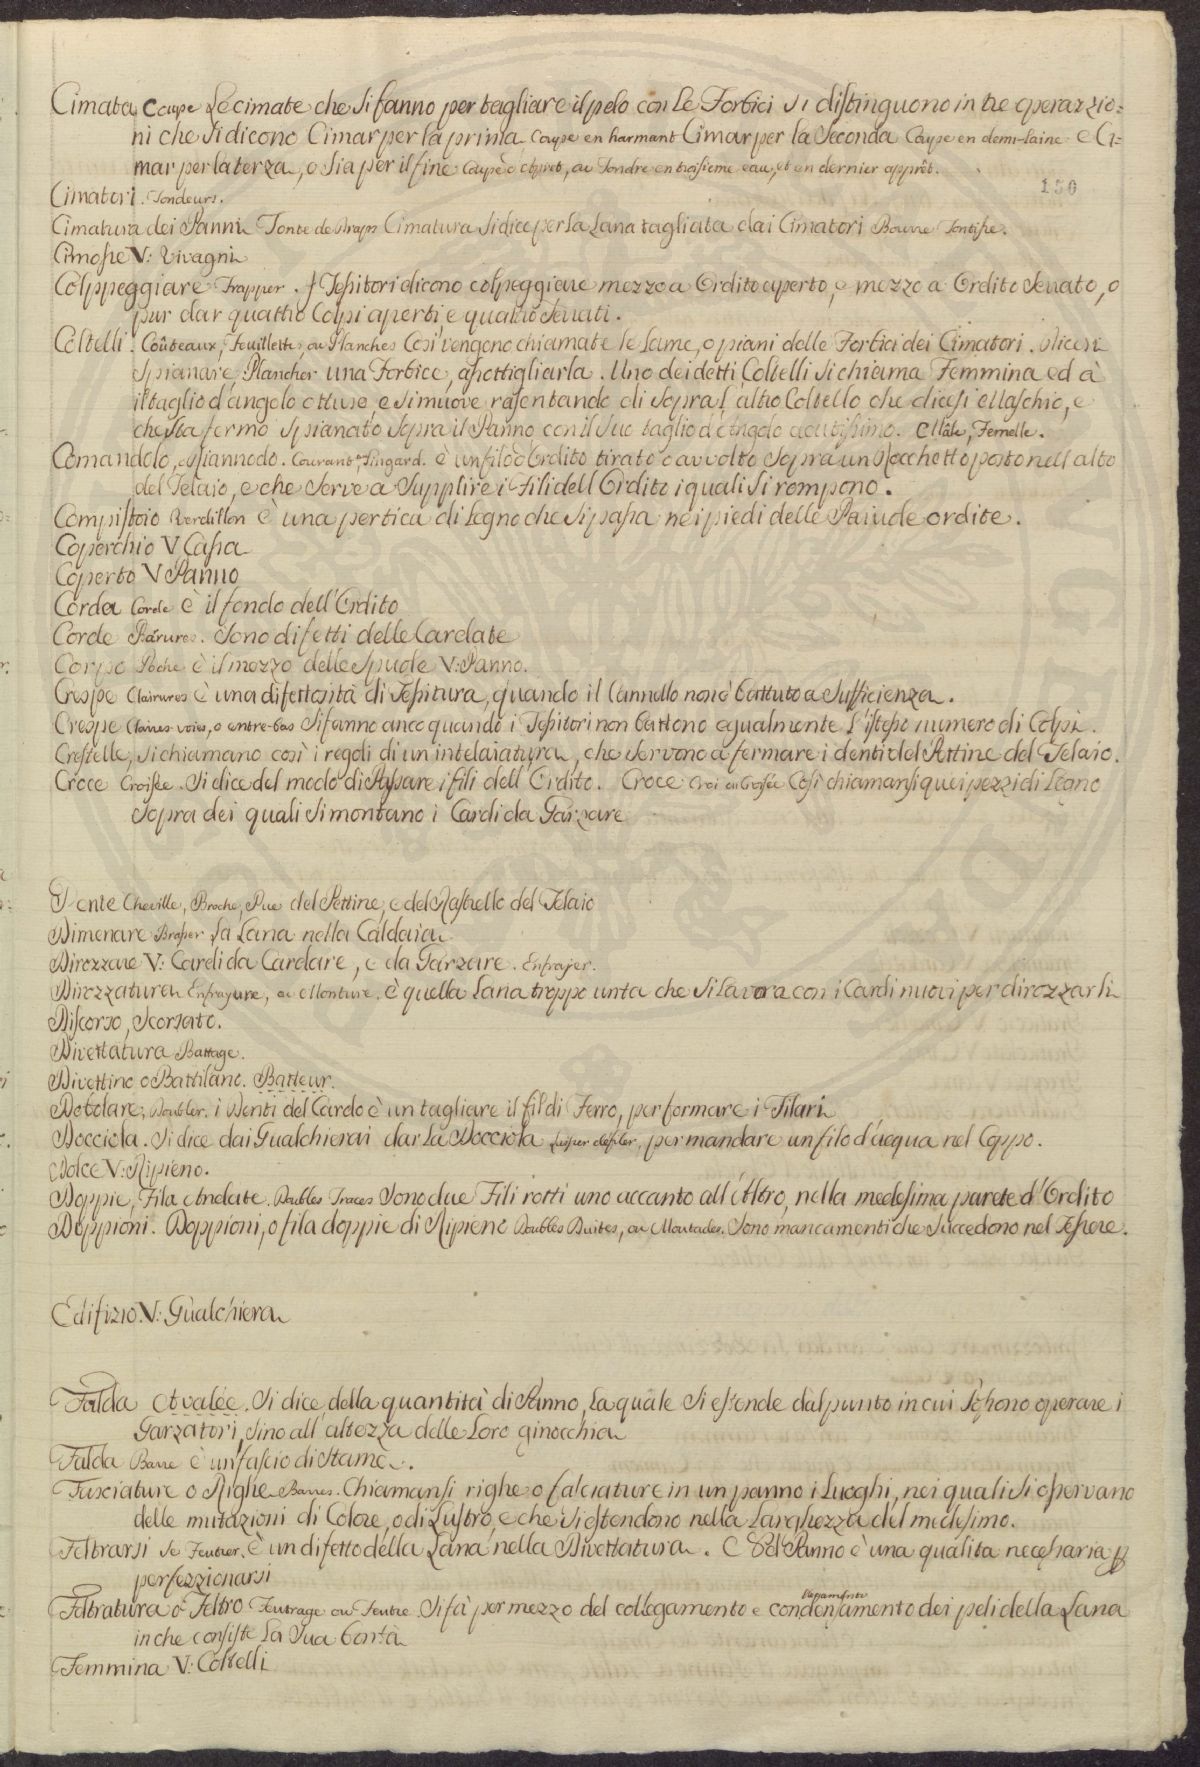 Cimata Coupe Le cimate che si fanno per tagliare il pelo con le Forbici si distinguono in tre operazzio=
ni che si dicono Cimar per la prima Coupe en harmant Cimar per la Seconda Coupe en demi-laine e Ci=
mar per la terza, o sia per il fine Coupe ò apret, ou Tondre en troisieme eau, et en dernier apprêt.
150
Cimatori. Tondeurs.
Cimatura dei Panni Tonte de Draps Cimatura si dice per la Lana tagliata dai Cimatori Bourre Tontisse.
Cimosse V: Vivagni
Colppeggiare Frapper. I Tessitori dicono colpeggiare mezzo a Ordito aperto, e mezzo a Ordito Serrato, o
pur dar quattro Colpi aperti, e quattro Serrati.
Coltelli. Coûteaux, Feuillettes, ou Planches Così vengono chiamate le Lame, o piani delle Forbici dei Cimatori. Dicesi
Spianare, Plancher una Forbice, assottigliarla. Uno dei detti Coltelli si chiama Femmina ed à
il taglio d'angolo ottuso e si muove rasentando di sopra l'altro Coltello che dicesi Maschio, e
che sta fermo Spianato sopra il Panno con il Suo taglio d'Angolo acutissimo. Mâle, Femelle.
Comandolo, Assiannodo. Courant, Fingard. è un filo d'Ordito tirato o avvolto Sopra un Rocchetto posto nell'alto
del Telaio, e che Serve a Supplire i Fili dell'Ordito i quali Si rompono.
Compistoio Verdillon è una pertica di Legno che si passa nei piedi delle Paiuole ordite.
Coperchio V Cassa
Coperto V Panno
Corda Corde è il fondo dell'Ordito
Corde Rârures. Sono difetti delle Cardate
Corpo Poche è il mezzo delle Spuole V: Panno.
Crespe Clairures è una difettosità di Tessitura, quando il Cannello non è battuto a Sufficienza.
Crespe Claires-voies, o entre-bas Si fanno anco quando i Tessitori non battono egualmente l'istesso numero di Colpi.
Crestelle, si chiamano così i regoli di un'intelaiatura, che servono a fermare i denti del Pettine del Telaio.
Croce Croisée. Si dice del modo di Passare i fili dell'Ordito. Croce Croi ou Croisée Così chiamansi quei pezzi di Legno
sopra dei quali si montano i Cardi da Garzare
Dente Cheville, Broche, Pue del Pettine, e del Rastrello del Telaio
Dimenare Brasser La Lana nella Caldaia
Dirozzare V: Cardi da Cardare, e da Garzare. Enfrajer.
Dirozzatura Enfrayure, ou Monture. è quella Lana troppo unta che si lavora con i Cardi nuovi per dirozzarli
Discorso, Scorsato.
Divettatura Battage.
Divettino o Battilano. Batteur.
Dobolare, Doubler. i Denti del Cardo è un tagliare il fil di Ferro, per formare i Filari
Docciola. Si dice dai Gualchierai dar la Docciola per mandare un filo d'acqua nel Ceppo.
Dolce V: Ripieno.
Doppie, Fila Andate. Doubles Traces Sono due Fili rotti uno accanto all'Altro, nella medesima parete d'Ordito
Doppioni. Doppioni, o fila doppie di Ripieno Doubles Duites, ou Moutades. Sono mancamenti che succedono nel Tessere.
Edifizio V: Gualchiera
Falda Avalée. Si dice della quantità di Panno, la quale Si estende dal punto in cui possono operare i
Garzatori, sino all'altezza delle Loro ginocchia
Falda Barre è un fascio di Stame.
Fasciature o Righe Barres. Chiamansi righe o falciature in un panno i Luoghi, nei quali Si osservano
delle mutazioni di Colore, o di Lustro, e che Si estendono nella Larghezza del medesimo.
Feltrarsi Se Feutrer. è un difetto della Lana nella Divettatura. Del Panno è una qualità necessaria p
perfezzionarsi
Feltratura o Feltro Feutrage ou Feutre Si fà per mezzo del collegamento e condensamento dei peli della Lana
in che consiste La Sua bontà
Femmina V: Coltelli